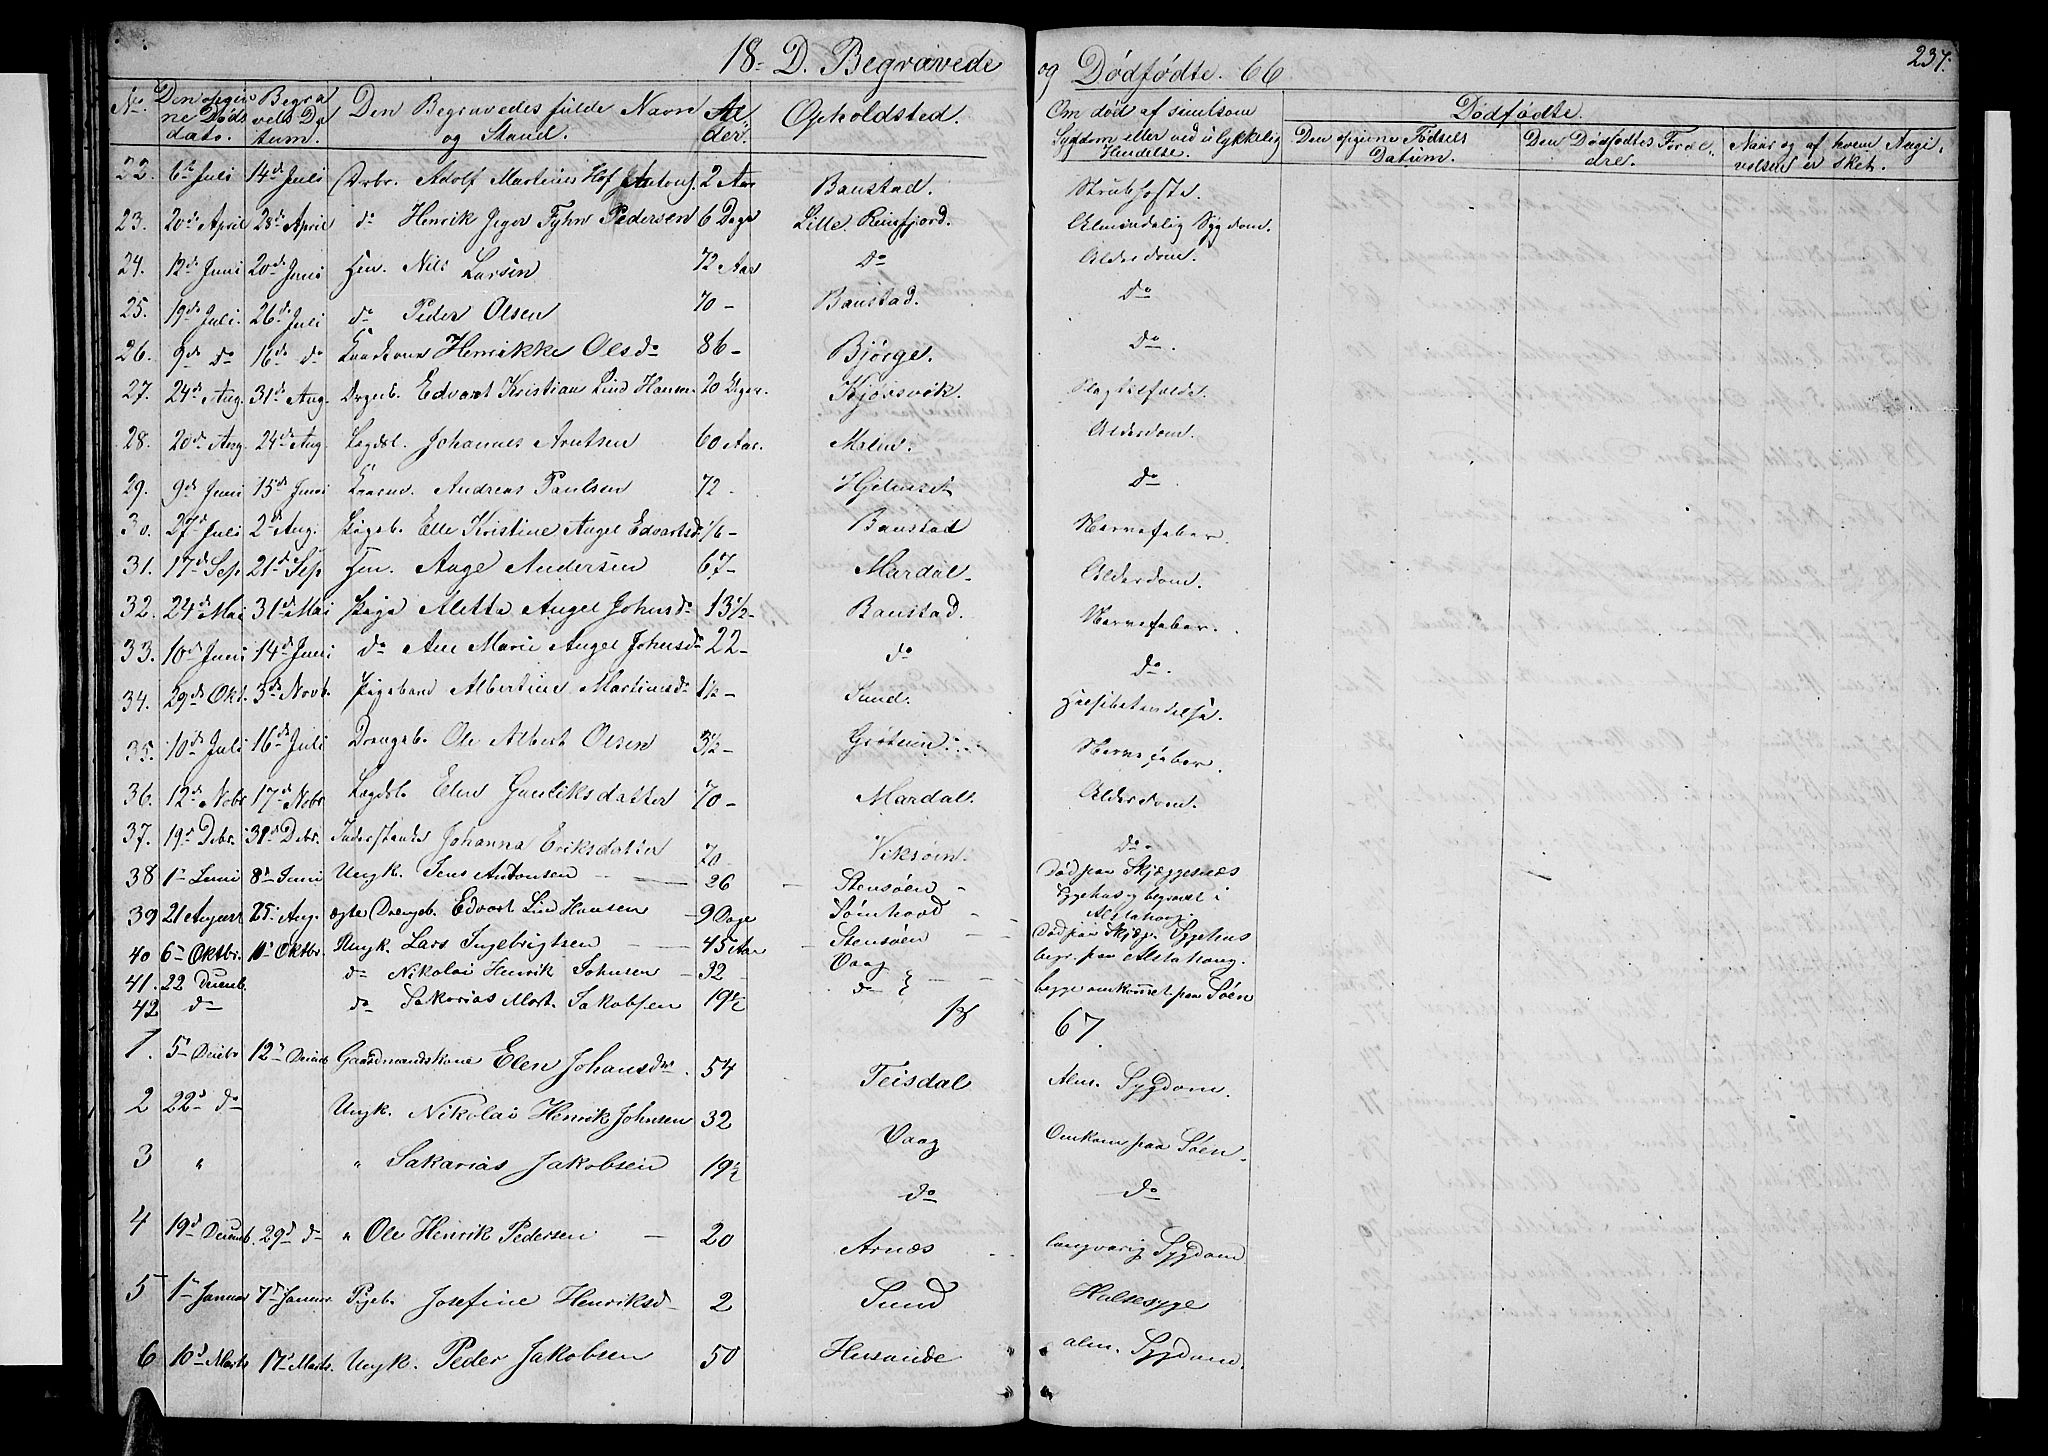 18- D. Begravede og Dødfødte. 66
237.
No. Den opgivne Døds dato. Begravels Datum. Den Begravedes fulde Navn og Stand. Alder. Opholdsted. Om død af simtsom Sygdom eller ved ulykkelig Hendelse. Dødfødte.
Den opgivne Fødsels Datum. Den Dødfødtes Forældre. Naar og af hvem Angivelsen er sket.
22. 6te Juli 14de Juli Drbr. Adolf Martinus Hof Antons. 2 Aar Baustad. Strubehoste.
23. 20de April 28de April do Henrik Jeger Fyhn Pedersen 6 Dage Lille Reinfjord. Almindelig Sygdom.
24. 12de Juni 20de Juni Hen. Nils Larsen 72 Aar Do Alderdom.
25. 19de Juli. 26de Juli do Peder Olsen 70 - Baustad. Do
26. 9de do 16de do Kaarkone Henrikke Olsdr 86 - Bjørge. Do.
27. 24de Aug. 31de Aug. Drgeb. Edvart Kristian Lind Hansen. 20 Dager. Kjøvsvik. Slagtilfælde.
28. 20de Aug. 24de Aug. Lægdsl. Johannes Arntsen 60 Aar. Malm. Alderdom.
29. 9de Juni 15de Juni Kaarm. Andreas Paulsen 72 - Hjelmset Do.
30. 27d Juli 2de Aug. Pigeb. Elle Kristine Angel Edvartsd. 1/6 - Baustad Nervefeber.
31. 17de Sep. 21de Sep. Hen. Aage Andersen 67 - Mardal. Alderdom.
32. 24de Mai 31de Mai Pige Aletta Angel Johnsdr 13 1/2 - Baustad. Nervefeber.
33. 10de Juni 14de Juni do Ane Marie Angel Johnsdr 22 - do do.
34. 29de Okt. 3de Novb. Pigebarn Albertine Martinusdr 1 1/2 - Sund. Halsbetændelse.
35. 10de Juli 16de Juli Drengeb. Ole Albert Olsen 3 1/2 - Grøteim. Nervefeber.
36. 12de Nobr 17de Nobr Lægdsl. Elen Gunliksdatter 70 - Mardal. Alderdom.
37. 19d Debr. 31d Debr. Inderstinde Johanna Eriksdatter 70 Viksøen. do.
38 1te Juni 8de Juni Ungk. Jens Antonsen 26 - Stensøen - Død paa Skjæggesnæs
Sygehus og begravet i
Alstahaug.
39 21 August 25. Aug. ægte Drengeb. Edvart Lind Hansen - 9 Dage Sømhovd -
40 6te Oktbr. 11te Oktbr. Ungk. Lars Ingebrigtsen 45 Aar - Stensøen - Død paa Skjægs. Sygehus
begr. paa Alstahaug.
41. 22 Decemb. do Nikolai Henrik Johnsen - 32 - Vaag
42 do do Sakarias Mart. Jakobsen 19 1/2 do begge omkomet paa Søen
18 67.
1. 5te Decbr 12te Decemb Gaardmandskone Elen Johansdtr. 54 Teisdal Alm. Sygdom.
2 22de do Ungk. Nikolai Henrik Johnsen 32 Vaag Omkom paa Søen.
3 " " Sakarias Jakobsen 19 1/2 do do
4 19de Decemb. 29de do " Ole Henrik Pedersen 20 Arnæs langvarig Sygdom
5 1te Januar 7de Januar Pigeb. Josefine Henriksd 2 Sund Halsesyge
6 10de Marts 17de Marts. Ungk. Peder Jakobsen 50 Husande alm. Sygdom.